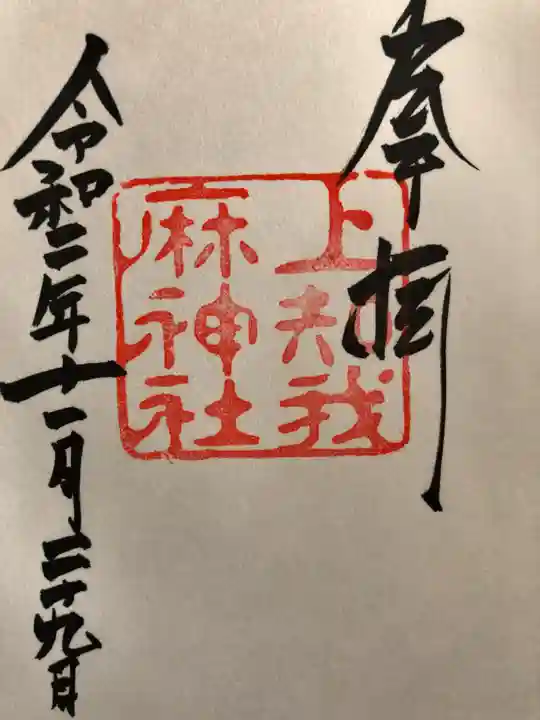 奉拝
上知我
麻神社
令和二年十一月二十九日